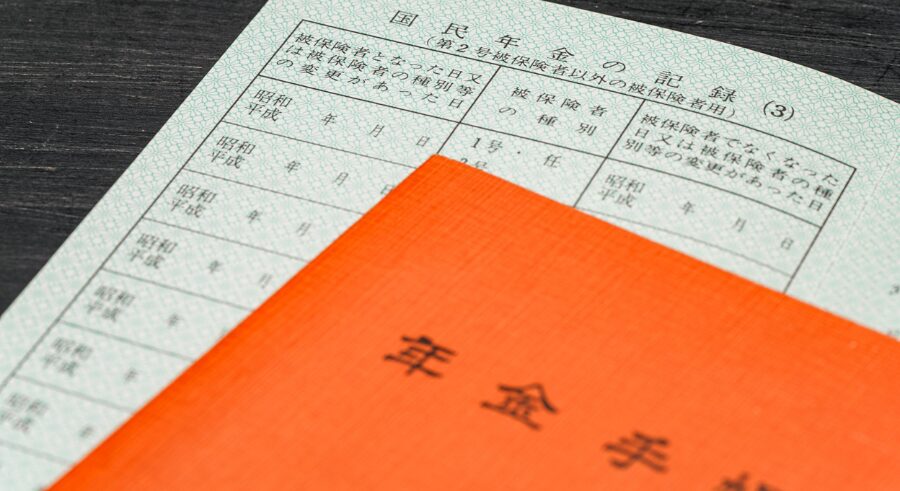 国民年金の記録(3)
(第2号被保険者以外の被保険者用)
被保険者となった日又
は被保険者の種別等
の変更があった日
被保険者
の種別
被保険者でなくなった
日又は被保険者の種
別等の変更があった日
昭和
平成 年 月 日
1号・任
2号
昭和
平成 年 月 日
昭和
平成 年 月 日
昭和
平成 年 月
昭和
平成 年 月
昭和
平成 年
昭和
平成 年
昭和
平成 年
年金手